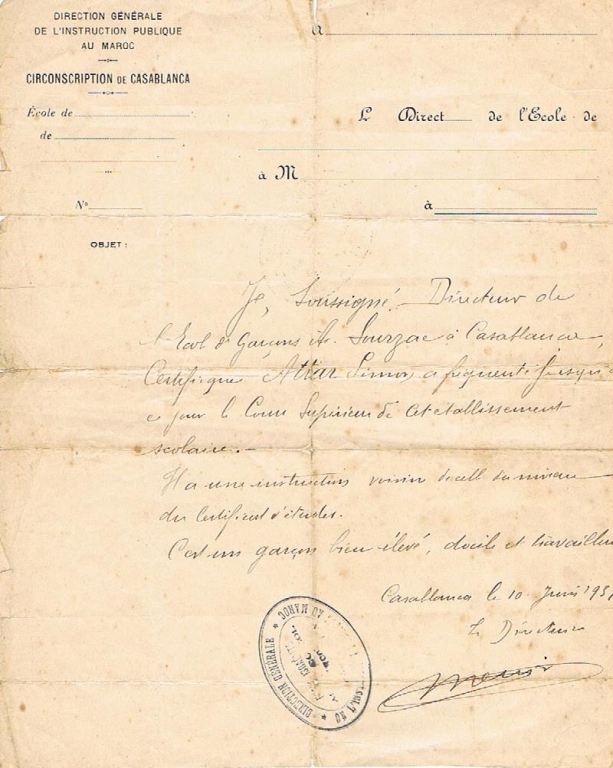 DIRECTION GÉNÉRALE
DE L'INSTRUCTION PUBLIQUE
AU MAROC
CIRCONSCRIPTION DE CASABLANCA
École de
de
N°
OBJET :
à
L Direct de l'École de
à M
à
Je, Soussigné - Directeur de
l'Ecol de Garçons à Casablanca,
Certifie que Attar Simon a fréquenté jusqu'à
ce jour le Cours Supérieur de cet établissement
scolaire. -
Il a une instruction voisine de cell du niveau
du Certificat d'études.
C'est un garçon bien élevé, docile et travailleur
Casablanca le 10 Juin 193
L Directeur
DIRECTION GÉNÉRALE
AU MAROC